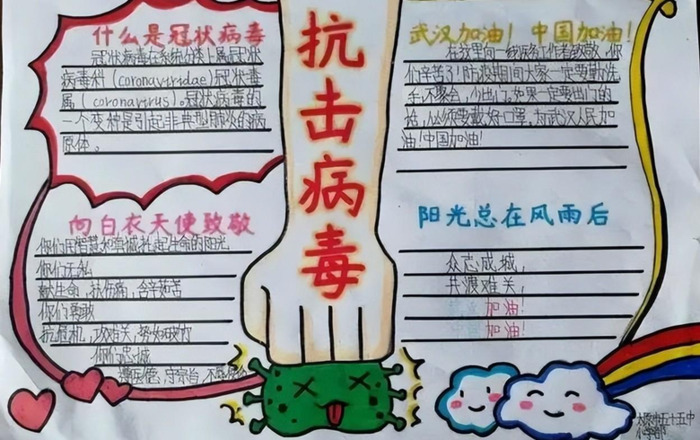 什么是冠状病毒
冠状病毒在系统分类上属冠状
病毒科(coronaviridae)冠状病毒
属(coronavirus)。冠状病毒的
一个变种是引起非典型肺炎的病
原体。
向白衣天使致敬
你们用智慧和雪城社起生命的阳光
你们无私
献生命,扶伤痛,含辛茹苦
你们勇敢
抗危机,攻难关,势如破竹
你们忠诚
抗击病毒
武汉加油!中国加油!
在这里向一线医务工作者致敬,你
们辛苦了!防疫期间大家一定要勤洗
手,不聚会,少出门。如果一定要出门的
话,必须要戴好口罩,为武汉人民加
油!中国加油!
阳光总在风雨后
众志成城,
共渡难关,
加油!
加油!
太原市五十五中
小学部